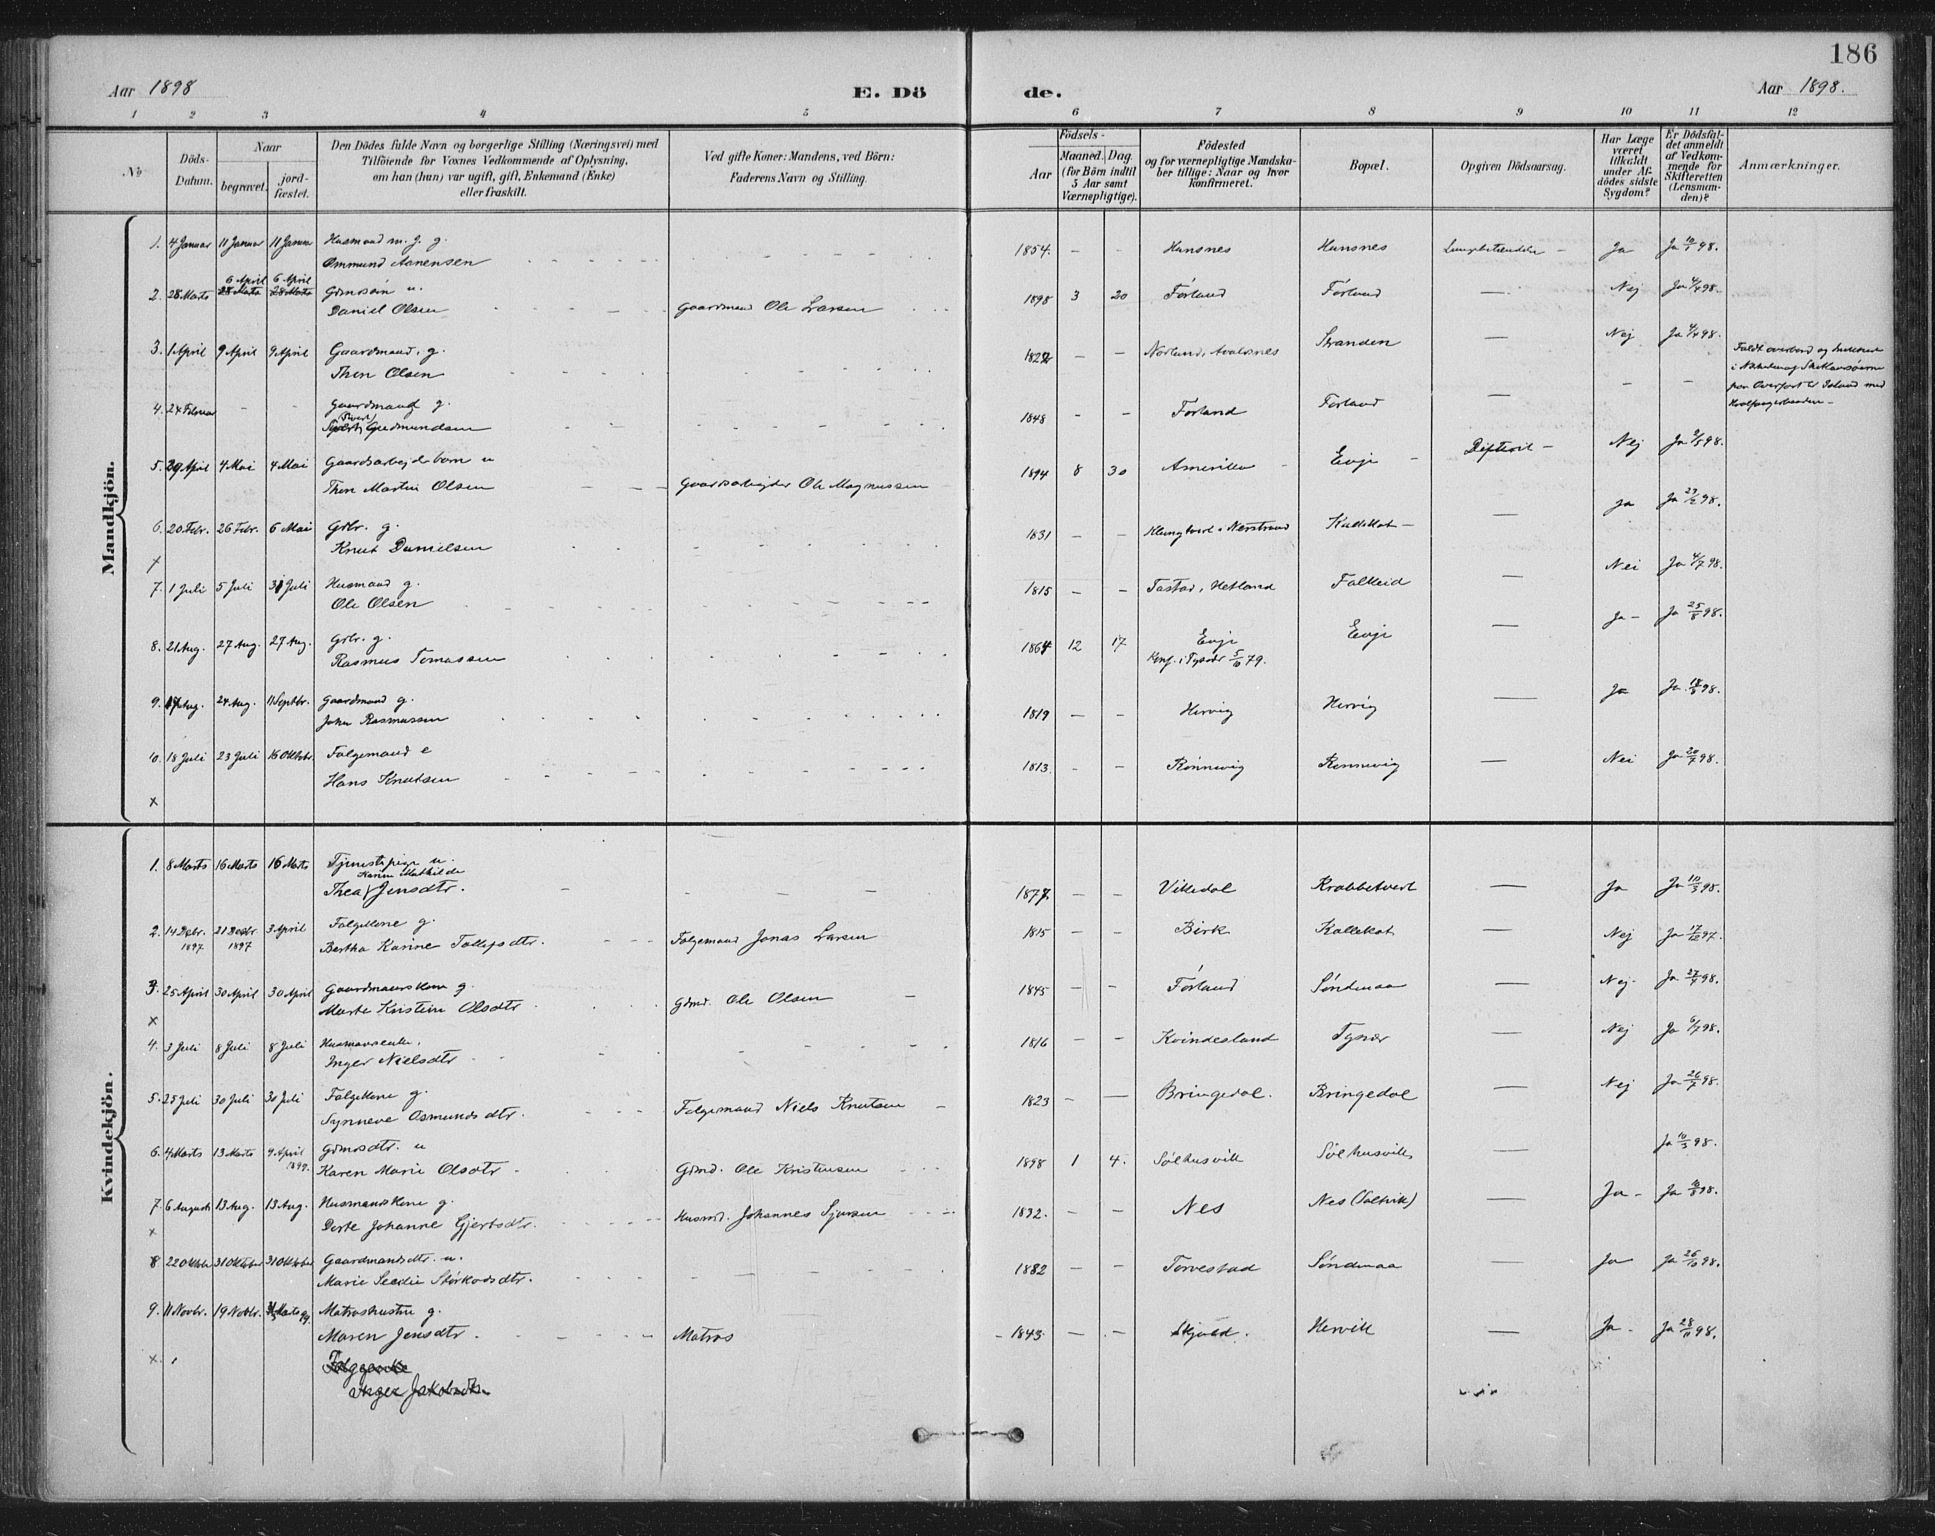 186
Aar 1898
E. Dö
de.
Aar 1898.
1 2 3 4 5 6 7 8 9 10 11 12
No
Döds-Datum.
Naar
begravet.
jord-fæstet.
Den Dödes fulde Navn og borgerlige Stilling (Næringsvei) med
Tilföiende for Voxnes Vedkommende af Oplysning,
om han (hun) var ugift, gift, Enkemand (Enke)
eller fraskilt.
Ved gifte Koner: Mandens, ved Börn:
Faderens Navn og Stilling.
Födsels-
Aar
Maaned. Dag.
(for Börn indtil
5 Aar samt
Værnepligtige).
Födested
og for værnepligtige Mandska-
ber tillige: Naar og hvor
konfirmeret.
Bopæl.
Opgiven Dödsaarsag.
Har Læge
været
tilkaldt
under Af-
dödes sidste
Sygdom?
Er Dödsfal-
det anmeldt
af Vedkom-
mende for
Skifteretten
(Lensman-
den)?
Anmærkninger.
Mandkjön.
1. 4 Januar 11 Januar 11 Januar Husmand m. j. g. Ommund Aanensen 1854. - - Hunsnes Hunsnes Lungebetændelse - Ja Ja 10/1 98.
2. 28 Marts 6 April 28 Marts 6 April 28 Marts Gdmdsön u. Daniel Olsen Gaardmand Ole Larsen 1898 3 20 Førland Førland — Nej Ja 4/4 98.
3. 1 April 9 April 9 April Gaardmand, g. Thon Olsen 1822 - - Norland, Avalsnes Stranden — Nej Ja 4/4 98.
4. 24 Februar - - Gaardmand g. Sivert Gudmundsen 1848 - - Førland Førland — - -
Faldt overbord og druknede
i Nærheden af Shetlandsøerne
paa Overfart til Island med
Hvalfangerbaaden -
5. 29 April 4 Mai 4 Mai Gaardsarbejderbarn u Thon Martin Olsen Gaardsarbejder Ole Magnussen 1894 8 30 Amerika Evje Difterit - Nej Ja 2/5 98.
6. 20 Febr. 26 Febr. 6 Mai Grbr. g. Knut Danielsen 1831 - - Klungtveit i Nerstrand Kallekot — Ja Ja 23/2 98.
x
7. 1 Juli 5 Juli 31 Juli Husmand g. Ole Olsen 1815 - - Tastad, Hetland Falkeid — Nei Ja 4/7 98.
8. 21 Aug. 27 Aug. 27 Aug. Grbr. g. Rasmus Tomassen 1864 12 17 Evje Konf. i Tysvær 5/10 79. Evje — Ja - Ja 25/8 98.
9. 17 Aug. 24 Aug. 11 Septbr. Gaardmand g. John Rasmussen 1819 - - Hervig Hervig — Ja Ja 18/8 98.
10. 18 Juli 23 Juli 16 Oktobr. Folgemand e Hans Knutsen 1813. - - Rønnevig Rønnevig — Nei Ja 20/7 98.
x
Kvindekjön.
1. 8 Marts 16 Marts 16 Marts Tjenestepige u. Thea Karine Mathilde Jensdtr. 1877. - - Vikedal Krabbetveit — Ja Ja 10/3 98.
2. 14 Decbr. 1897 21 Decbr 1897 3 April Folgekone g. Bertha Karine Tollefsdtr. Folgemand Jonas Larsen 1815 - - Birk Kallekot — Nej Ja 17/12 97.
3. 25 April 30 April 30 April Gaardmandskone g. Marte Kristine Olsdtr Gdmd. Ole Olsen 1845 - - Førland Søndenaa — Nej. Ja 27/4 98.
x
4. 3 Juli 8 Juli 8 Juli Husmandsenke, Inger Nielsdtr 1816 - - Kvindesland Tysvær — Nej Ja 6/7 98.
5. 25 Juli 30 Juli 30 Juli Folgekone g. Synneve Osmundsdtr. Folgemand Niels Knutsen 1823 - - Bringedal. Bringedal — Nej Ja 26/7 98.
6. 4 Marts 13 Marts 9 April 1899. Gdmdsdtr. u Karen Marie Olsdtr Gdmd. Ole Kristensen 1898 1 4. Sølhusvik Sølhusvik — Ja 10/3 98.
7. 6 August 13 Aug. 13 Aug. Husmandskone g. Dorte Johanne Gjertsdtr. Husmd. Johannes Sjursen 1832. - - Nes Nes (Saltvik) — Ja - Ja 10/8 98.
x
8 22 Oktober 31 Oktober 31 Oktober Gaardmandsdtr. u. Marie Seselie Størkorsdtr. 1882 - - Torvestad Søndenaa — Ja Ja 26/10 98.
9. 11 Novbr. 19 Novbr. Marts 99. Matroshustru g. Maren Jensdtr Matros 1843. - - Skjold. Hervik — Ja - Ja 28/11 98.
x. Inger Jakobsdtr